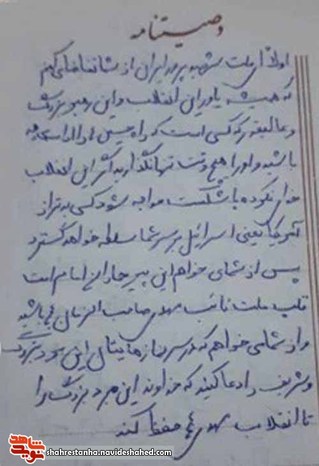 وصیتنامه
اولاً ای ملت شهید پرور ایران از شما تقاضا می کنم
که همیشه یاور این انقلاب و این رهبر بزرگ
و عالیقدر که کسی است که راه حسین را ادامه داده
باشید و او را هیچ وقت تنها نگذارید اگر این انقلاب
خدای نکرده با شکست مواجه شود کسی بدتر از
آمریکا یعنی اسرائیل بر سر شما سلطه خواهد گسترد
پس از شما می خواهم این پیر جماران امام است
قلب ملت نائب مهدی صاحب الزمان عج باشید
و از شما می خواهم که در سر نمازهایتان این مرد بزرگ
و شریف را دعا کنید که خداوند این مرد بزرگ را
تا انقلاب مهدی عج حفظ کند
نوید شاهد
shahrestanha.navideshahed.com